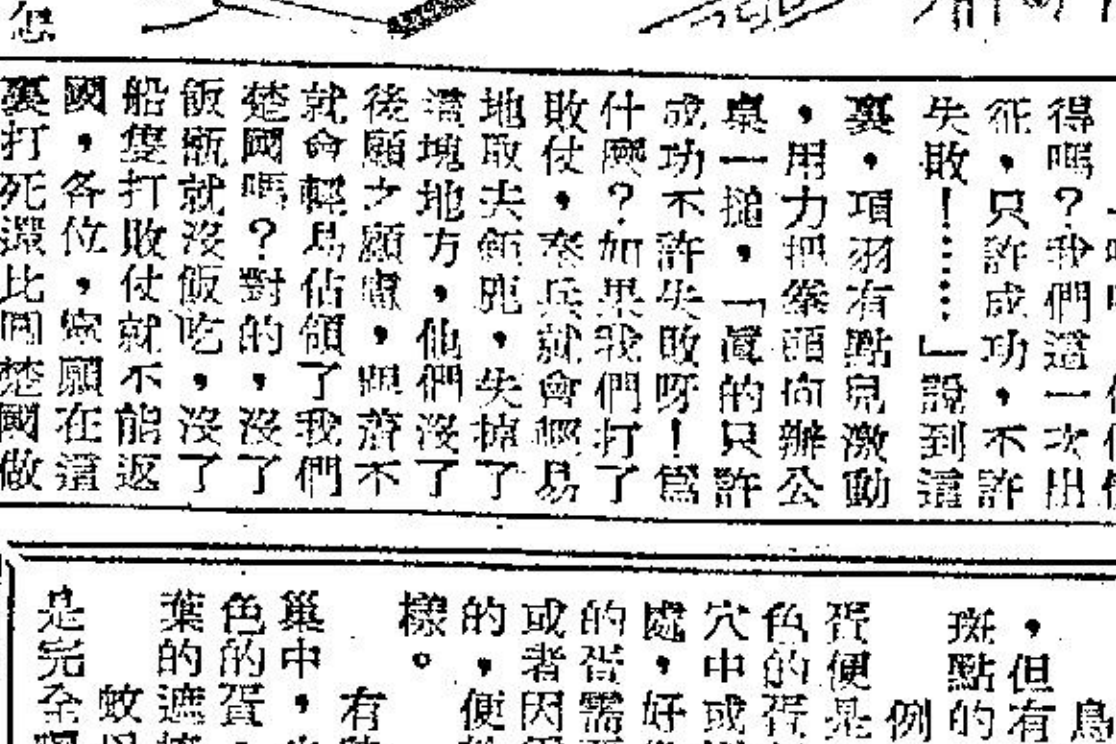 得嗎？我們這一次出
征，只許成功，不許
失敗！⋯⋯」說到這
裏，項羽有點兒激動
，用力把拳頭向辦公
桌一搥，「眞的只許
成功不許失敗呀！爲
什麼？如果我們打了
敗仗，秦兵就會輕易
地取去鉅鹿，失掉了
這塊地方，他們沒了
後顧之顧慮，跟著不
就會輕易佔領了我們
楚國嗎？對的，沒了
飯瓶就沒飯吃，沒了
船隻打敗仗就不能返
國，各位，寧願在這
裏打死還比回楚國做
鳥
，但有
斑點的
例
蛋便是
色的蛋
穴中或
處，好
的蛋需
或者因
的，便
樣。
有
巢中，
色的蛋
葉的遮
蚊
是完全